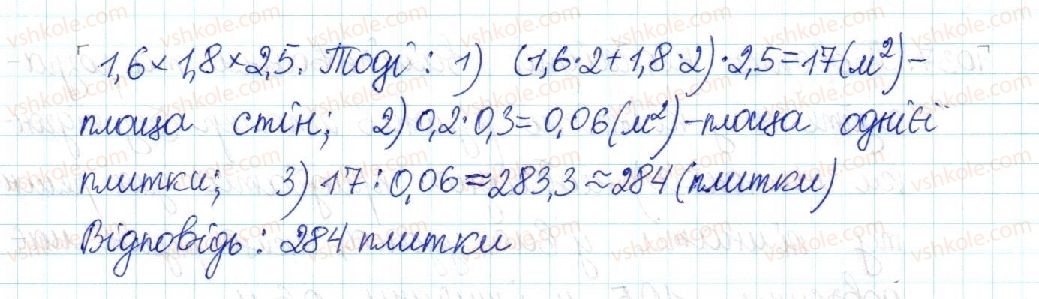 1,6×1,8×2,5. Тоді: 1) (1,6·2+1,8·2)·2,5=17(м²)–
площа стін; 2) 0,2·0,3=0,06(м²)–площа однієї
плитки; 3) 17:0,06≈283,3≈284(плитки)
Відповідь: 284 плитки